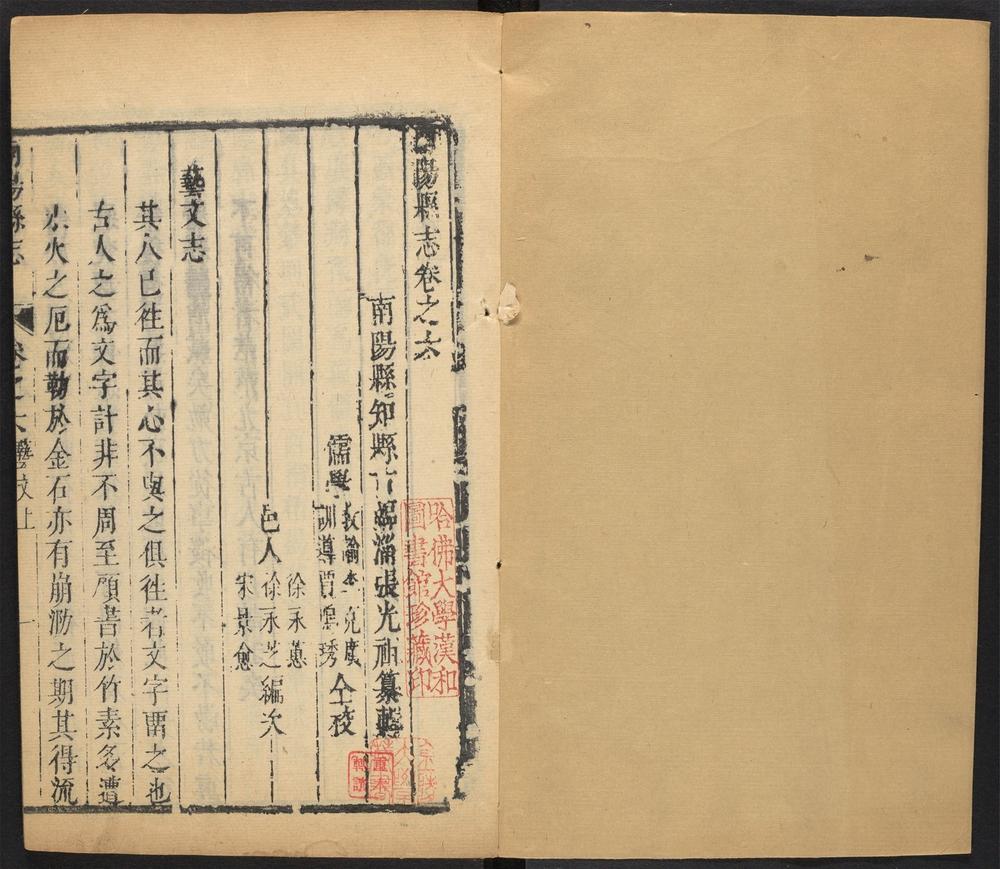 陽縣志卷之六
南陽縣知縣古臨淄張光祖纂輯
儒學教諭李克廣
訓導賈德琇仝校
徐永蕙
邑人徐永芝編次
宋景愈
藝文志
其人已徃而其心不與之俱徃者文字畱之也
古人之為文字計非不周至顧著於竹素多遭
水火之厄而勒於金石亦有崩泐之期其得流
南陽縣志
卷之六藝文上
一
哈佛大學漢和
圖書館珍藏印